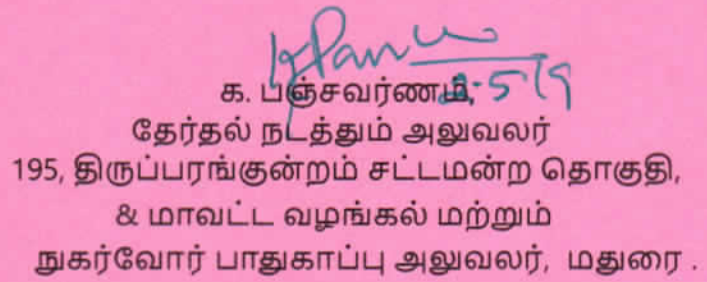 2-5-19
க. பஞ்சவர்ணம்,
தேர்தல் நடத்தும் அலுவலர்
195, திருப்பரங்குன்றம் சட்டமன்ற தொகுதி,
& மாவட்ட வழங்கல் மற்றும்
நுகர்வோர் பாதுகாப்பு அலுவலர், மதுரை .